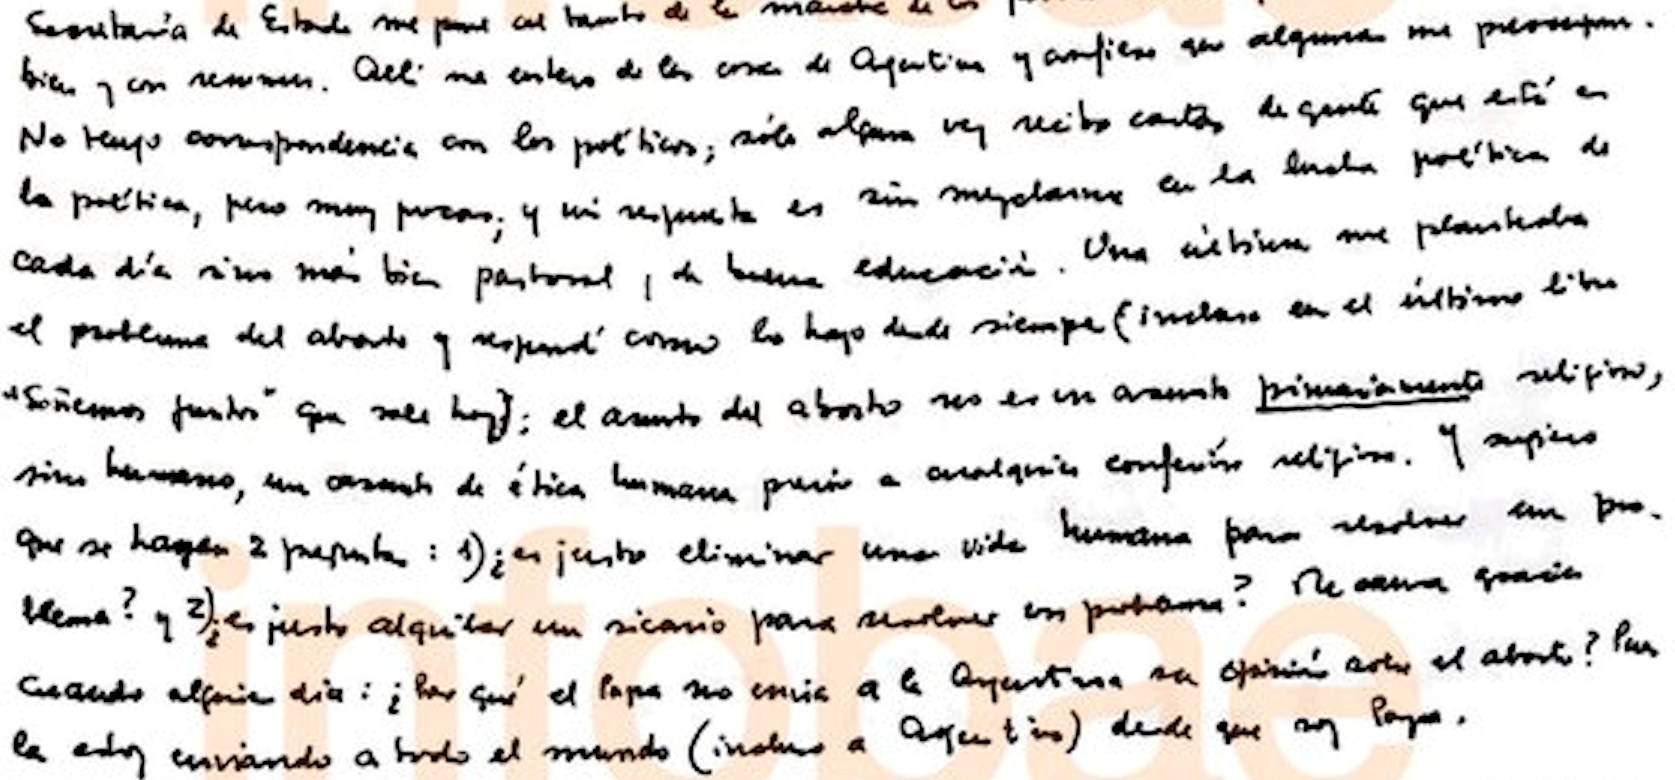 Secretaría de Estado me pone al tanto de la marcha de los
bien y con resumen. Allí me entero de las cosas de Argentina y confieso que algunas me preocupan.
No tengo correspondencia con los políticos; sólo alguna vez recibo cartas de gente que está en
la política, pero muy pocas; y mi respuesta es sin mezclarme en la lucha política de
cada día sino más bien pastoral, de buena educación. Una última me planteaba
el problema del aborto y respondí como lo hago desde siempre (incluso en el último libro
"Soñemos juntos" que sale hoy); el asunto del aborto no es un asunto primariamente religioso,
sino humano, un asunto de ética humana previo a cualquier confesión religiosa. Y sugiero
que se hagan 2 preguntas: 1) ¿es justo eliminar una vida humana para resolver un pro-
blema? y 2) ¿es justo alquilar un sicario para resolver un problema? Me causa gracia
cuando alguien dia: ¿Por qué el Papa no envia a la Argentina su opinión sobre el aborto? Pues
la estoy enviando a todo el mundo (incluso a Argentina) desde que soy Papa.
infobae
infobae